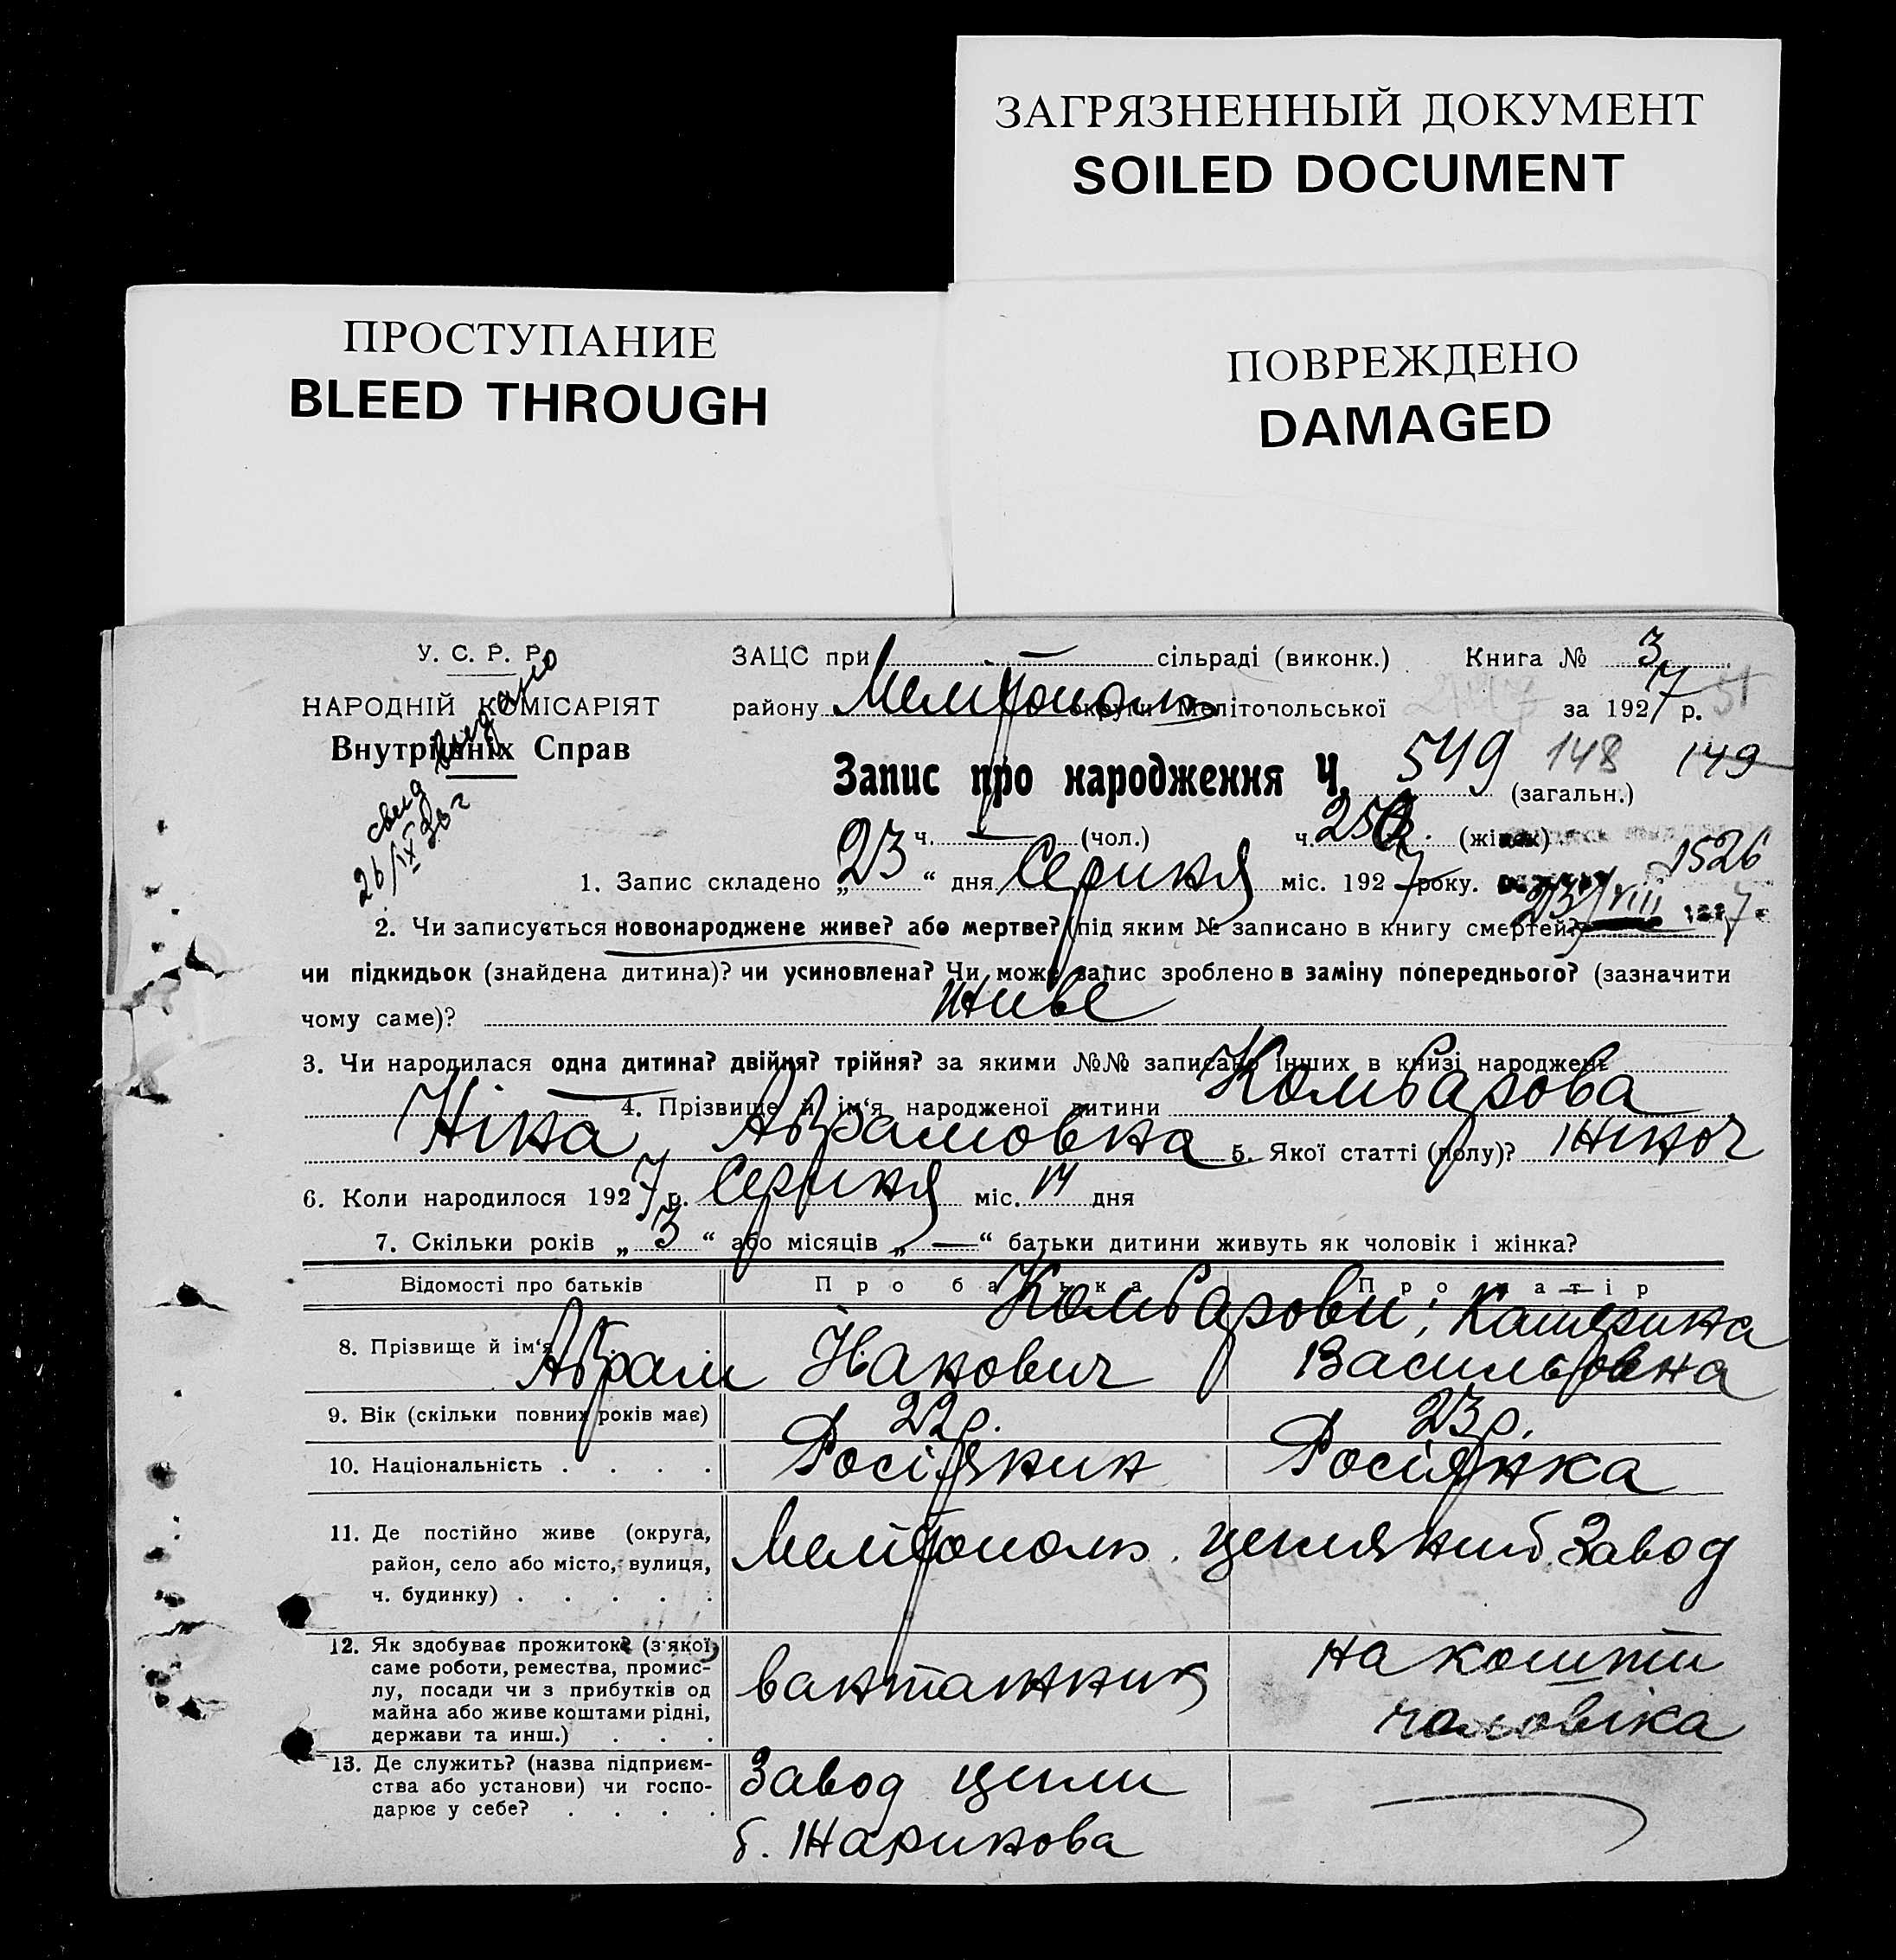 ЗАГРЯЗНЕННЫЙ ДОКУМЕНТ
SOILED DOCUMENT
ПРОСТУПАНИЕ
BLEED THROUGH
ПОВРЕЖДЕНО
DAMAGED
У. С. Р. Р.
НАРОДНІЙ КОМІСАРІЯТ
Внутрішніх Справ
свид выдано
26/IX 36 г
ЗАЦС при — сільраді (виконк.) Книга № 3
району Мелітополь округи Мелітопольської за 1927 р. 51
Запис про народження Ч. 549 (загальн.) 148 149
ч. — (чол.) ч. 252. (жіноч.)
1. Запис складено „23“ дня Серпня міс. 1927 року. 1526
23/VIII 1927
2. Чи записується новонароджене живе? або мертве? (під яким № записано в книгу смертей?)
чи підкидьок (знайдена дитина)? чи усиновлена? Чи може запис зроблено в заміну попереднього? (зазначити
чому саме)? живе
3. Чи народилася одна дитина? двійня? трійня? за якими №№ записано інших в книзі народжень
4. Прізвище й ім‘я народженої дитини Комбарова
Ніна Абрамовна 5. Якої статті (полу)? жіноч
6. Коли народилося 1927 р. Серпня міс. 14 дня
7. Скільки років „3“ або місяців „—“ батьки дитини живуть як чоловік і жінка?
Відомості про батьків Про батька Про матір
8. Прізвище й ім‘я Комбарови; Катерина
Абрам Ісакович Васильовна
9. Вік (скільки повних років має) 22 р. 23 р.
10. Національність . . . . Росіянин Росіянка
11. Де постійно живе (округа,
район, село або місто, вулиця,
ч. будинку) . . . . .
Мелітополь, цегляний завод
12. Як здобуває прожиток? (з якої
саме роботи, ремества, промис-
лу, посади чи з прибутків од
майна або живе коштами рідні,
держави та инш.) . . .
вантажник
на кошти
чоловіка
13. Де служить? (назва підприєм-
ства або установи) чи госпо-
дарює у себе? . . . .
Завод цегли
б. Жарикова